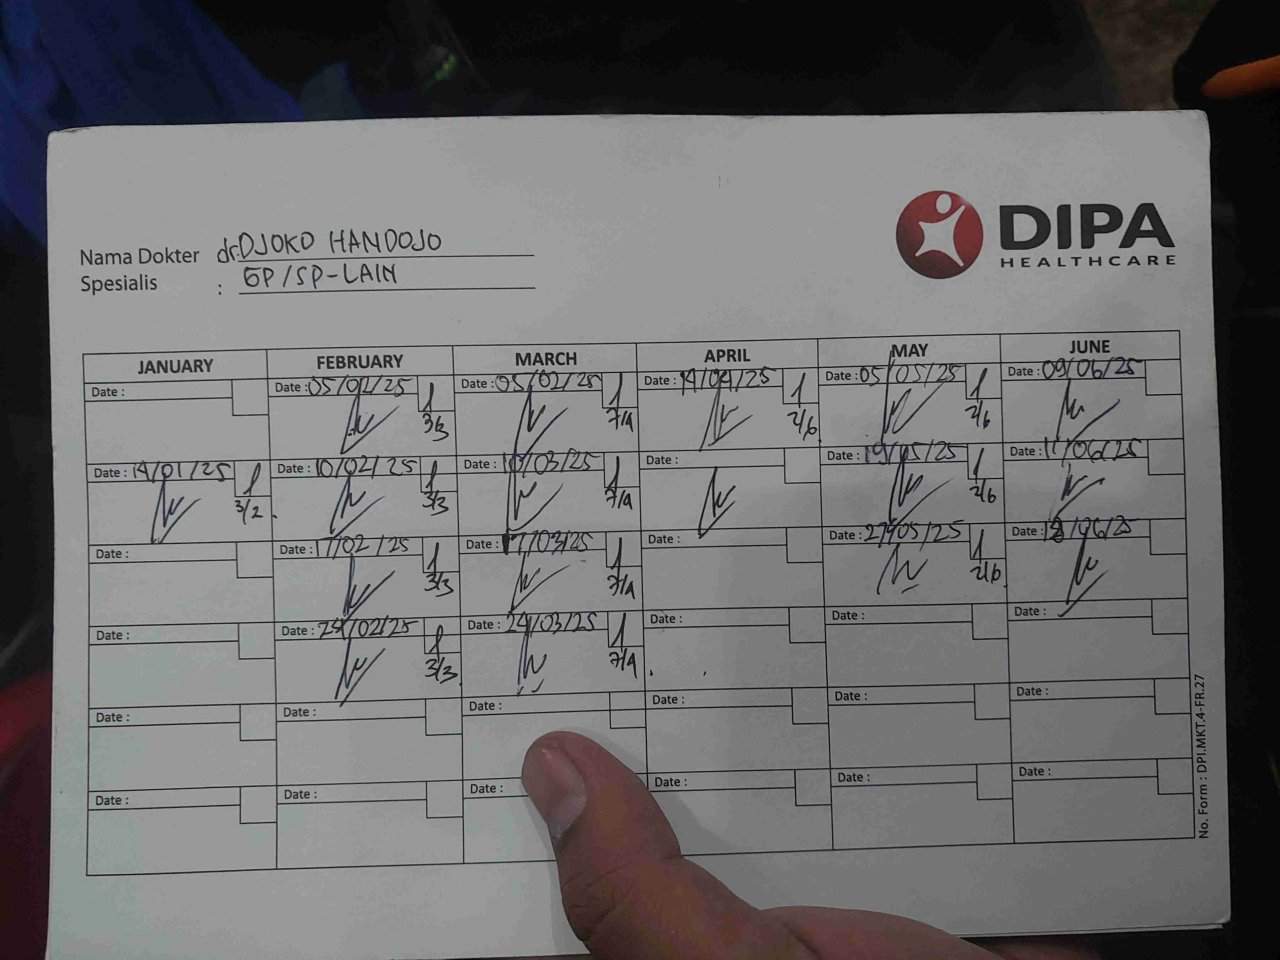 DIPA
HEALTHCARE
Nama Dokter dr.DJOKO HANDOJO
Spesialis : GP/SP-LAIN
JANUARY FEBRUARY MARCH APRIL MAY JUNE
Date : Date : 05/02/25 Date : 05/02/25 Date : 14/04/25 Date : 05/05/25 Date : 09/06/25
3/3 7/4 2/6 2/6
Date : 14/01/25 Date : 10/02/25 Date : 10/03/25 Date : Date : 19/05/25 Date : 11/06/25
3/2 3/3 7/4 2/6
Date : Date : 17/02/25 Date : 17/03/25 Date : Date : 27/05/25 Date : 18/06/25
3/3 7/4 2/6
Date : Date : 24/02/25 Date : 24/03/25 Date : Date : Date :
3/3 7/4
Date : Date : Date : Date : Date : Date :
Date : Date : Date : Date : Date : Date :
No. Form : DPI.MKT.4-FR.27